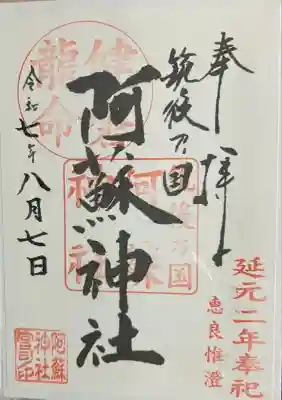 奉拝
筑後乃国
阿蘇神社
令和七年八月七日
健磐龍命
筑後乃国
阿蘇
神社
延元二年奉祀
恵良惟澄
阿蘇
神社
宮司印